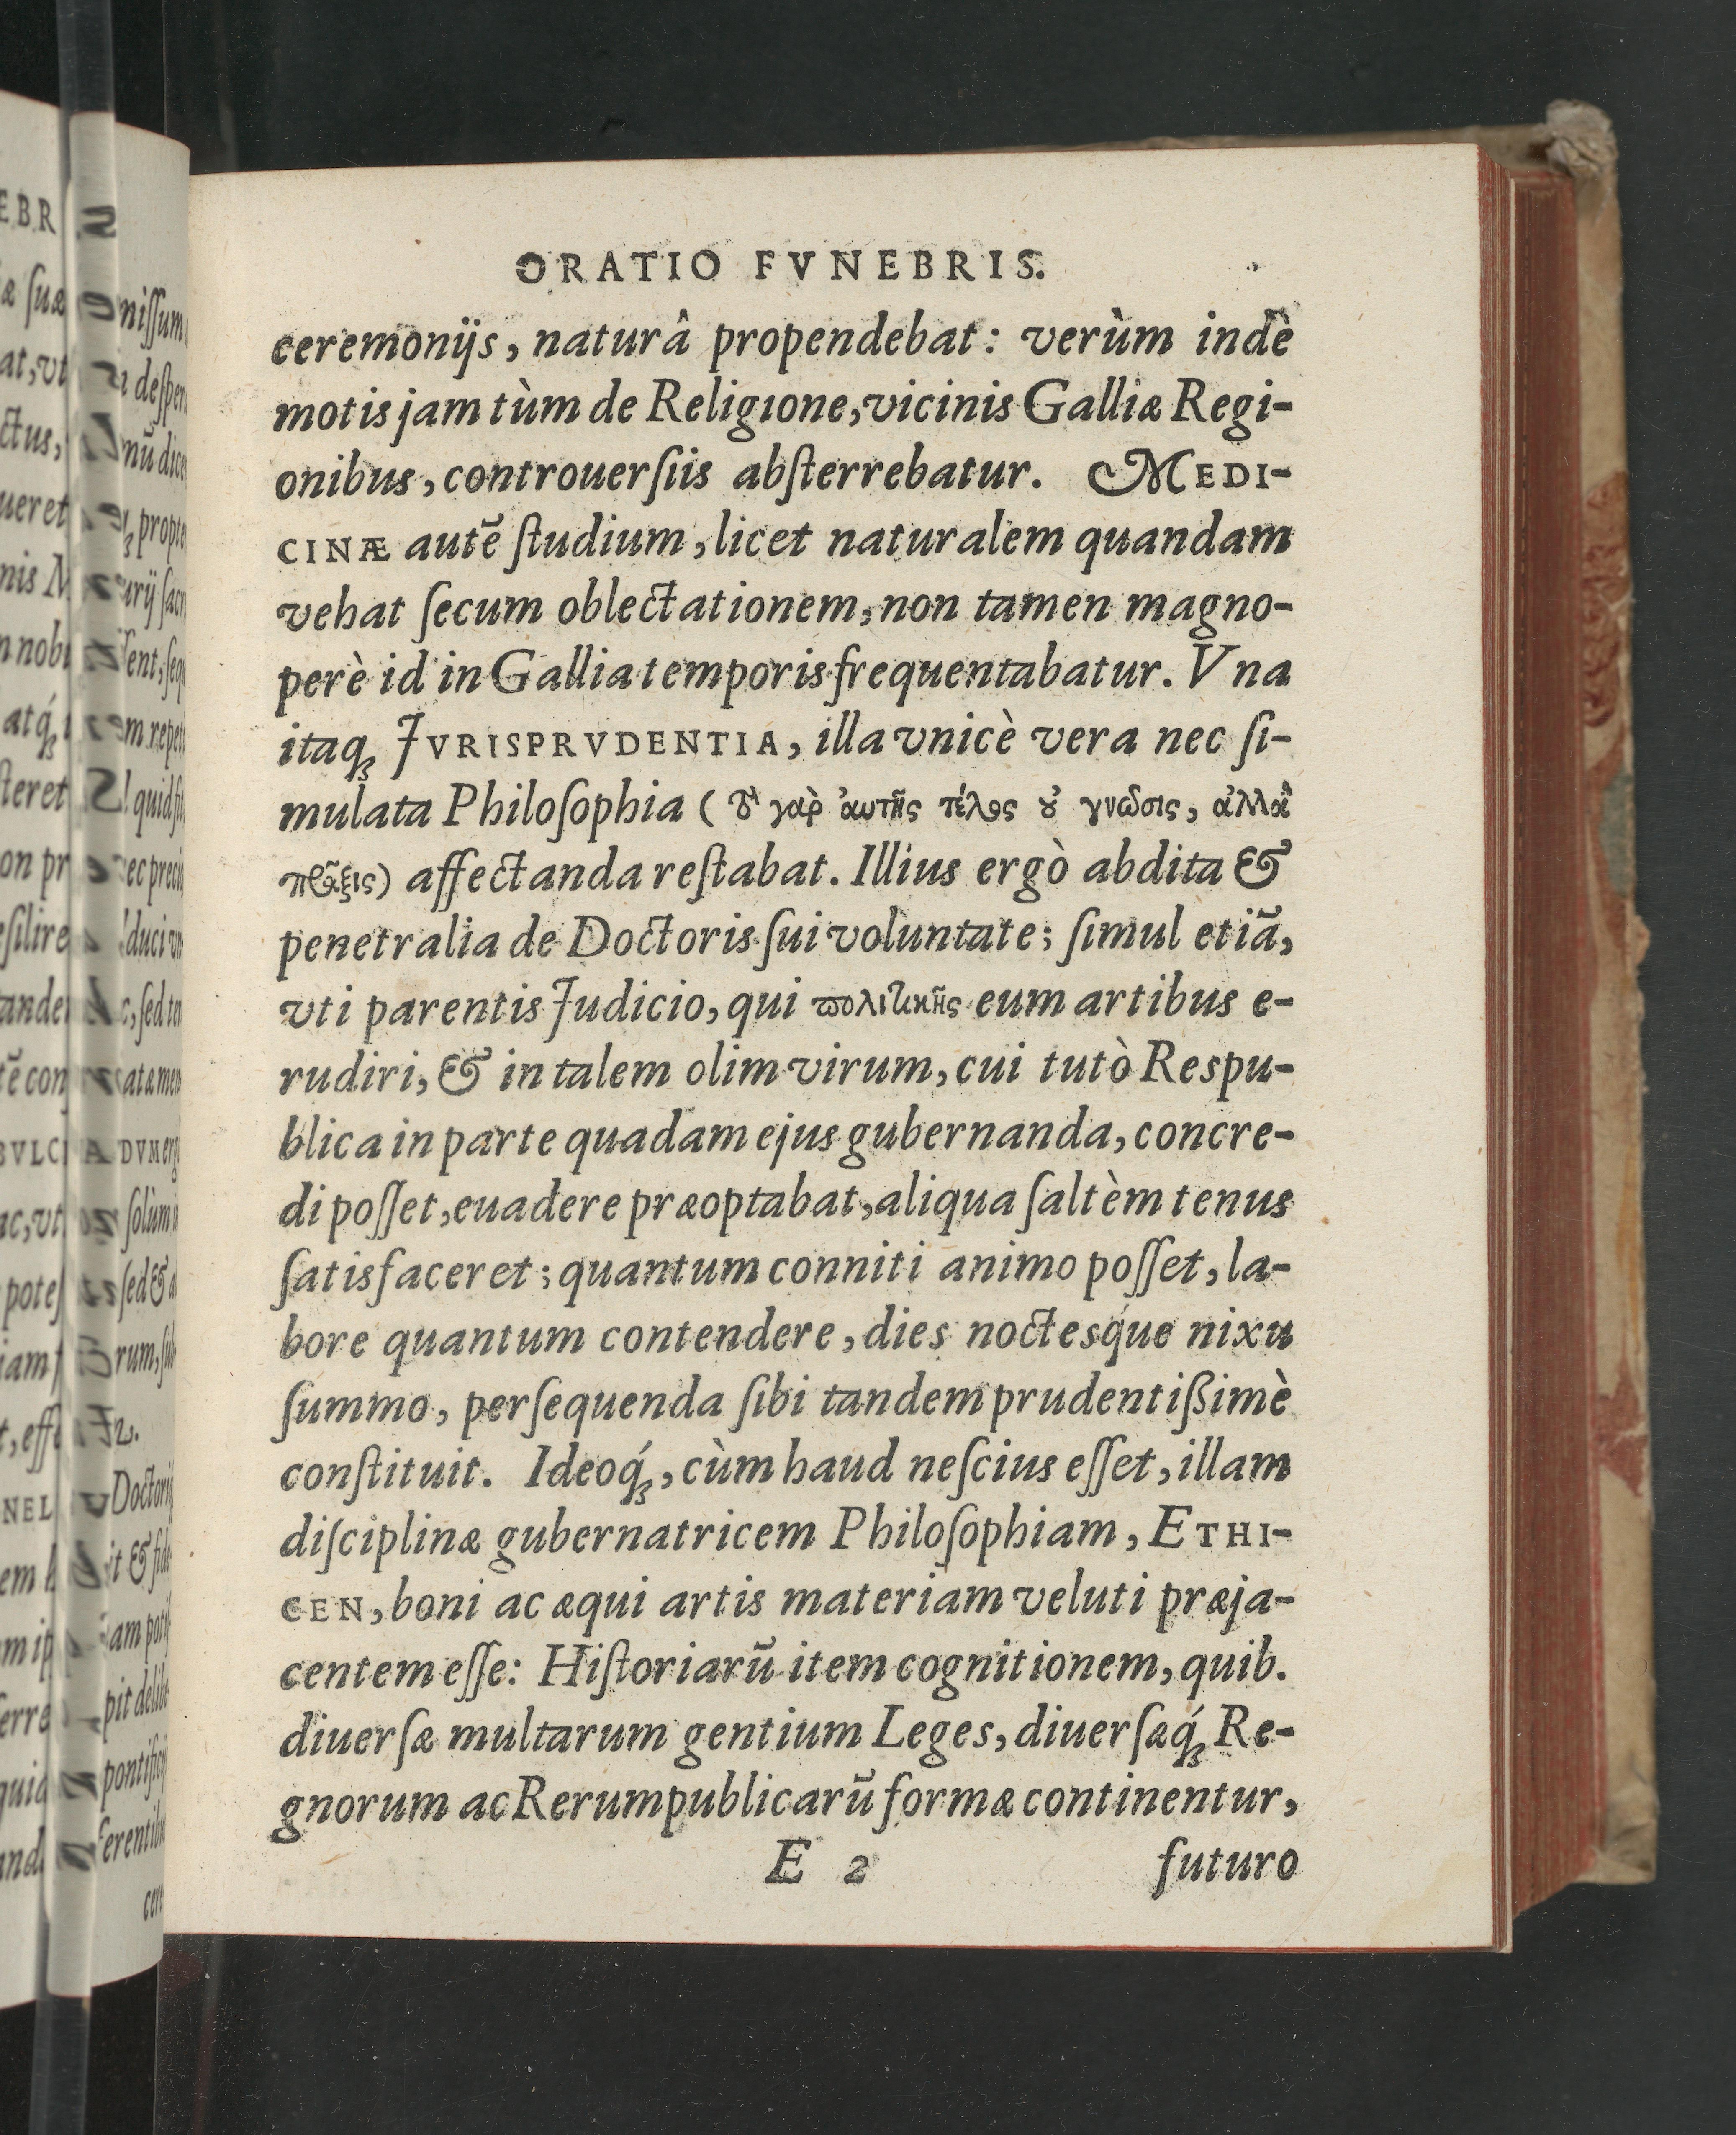 ORATIO FVNEBRIS.
ceremonijs, naturâ propendebat: verùm indè
motis jam tùm de Religione, vicinis Galliæ Regi-
onibus, controuerſiis abſterrebatur. MEDI-
CINÆ autẽ ſtudium, licet naturalem quandam
vehat ſecum oblectationem, non tamen magno-
perè id in Gallia temporis frequentabatur. Vna
itaqꝫ JVRISPRVDENTIA, illa vnicè vera nec ſi-
mulata Philoſophia (ȣ̓ γαρ̀ ἀυτῆς τέλος ȣ̓ γνῶσις, ἀλλὰ
πρᾶξις) affectanda reſtabat. Illius ergò abdita &
penetralia de Doctoris ſui voluntate; ſimul etiã,
vti parentis Judicio, qui πολιτικῆς eum artibus e-
rudiri, & in talem olim virum, cui tutò Respu-
blica in parte quadam ejus gubernanda, concre-
di poſſet, euadere præoptabat, aliqua ſaltèm tenus
ſatisfaceret; quantum conniti animo poſſet, la-
bore quantum contendere, dies noctesq́ue nixu
ſummo, perſequenda ſibi tandem prudentißimè
conſtituit. Ideoq́ꝫ, cùm haud neſcius eſſet, illam
diſciplinæ gubernatricem Philoſophiam, ETHI-
CEN, boni ac æqui artis materiam veluti præja-
centem eſſe: Hiſtoriarũ item cognitionem, quib.
diuerſæ multarum gentium Leges, diuerſæq́ꝫ Re-
gnorum ac Rerumpublicarũ formæ continentur,
E 2 futuro